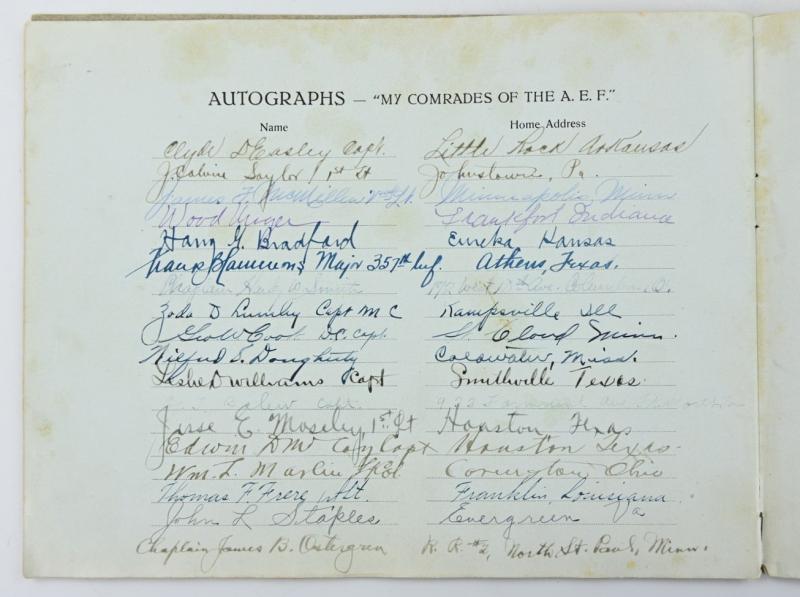 AUTOGRAPHS — "MY COMRADES OF THE A. E. F."
Name Home Address
Clyde D Easley Capt. Little Rock Arkansas
J. Calvin Saylor 1st Lt Johnstown, Pa.
James F. McMillen 2nd Lt. Minneapolis Minn
Wood Unger Frankfort Indiana
Harry G. Bradford Eureka Kansas
Major 357th Inf. Athens, Texas.
Zoda D Lumley Capt M C Kampsville Ill
Geo W Cook D.C. Capt. St. Cloud Minn.
Wilfred S. Dougherty Coldwater, Miss.
Leslie D Williams Capt Smithville Texas.
Capt.
Jesse E. Moseley 1st Lt Houston, Texas
Edwin D Mc Coy Capt Houston Texas.
Wm. L. Marlin Covington Ohio
Thomas F. Frere Lt. Franklin, Louisiana
John L Staples Evergreen Va
Chaplain James B. Ostergren R. R. #2, North St. Paul, Minn.